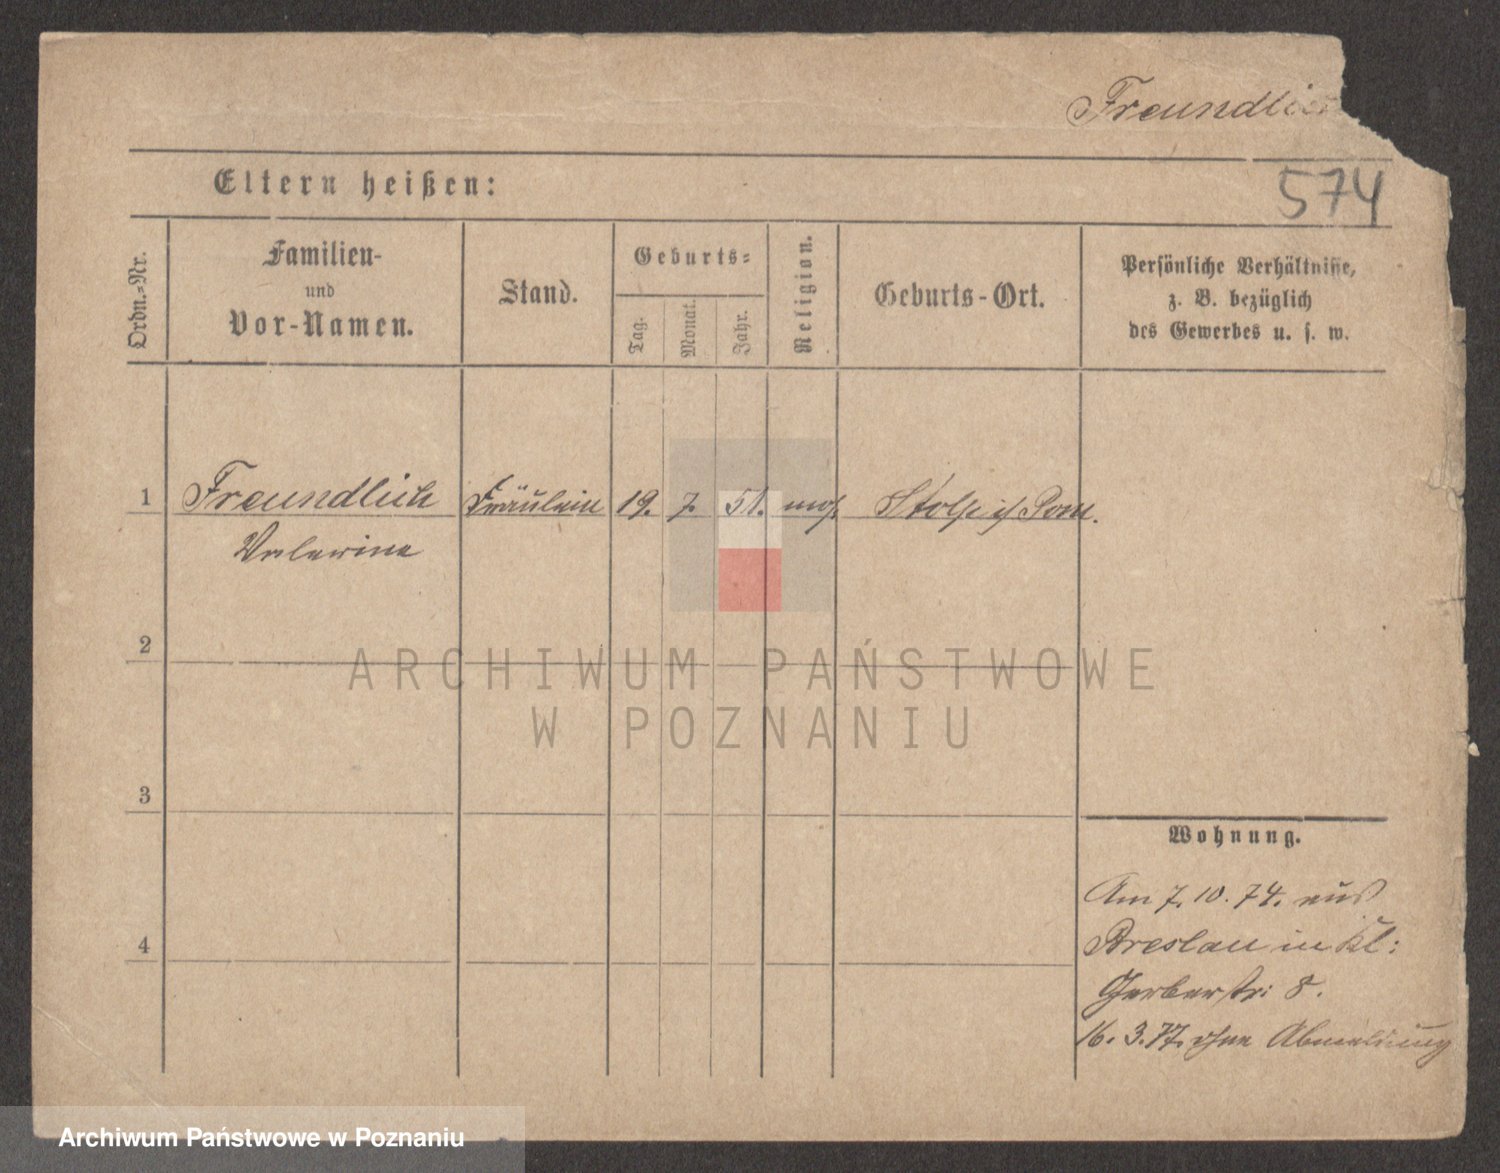 Freundlich
574
Eltern heißen:
Ordn.-Nr.
Familien-
und
Vor-Namen.
Stand.
Geburts-
Tag.
Monat.
Jahr.
Religion.
Geburts-Ort.
Persönliche Verhältnisse,
z. B. bezüglich
des Gewerbes u. s. w.
1 Freundlich Fräulein 19. 7. 51. mos. Stolp i/ Pom.
Valerine
2
ARCHIWUM PAŃSTWOWE
W POZNANIU
3
Wohnung.
Am 7. 10. 74. aus
Breslau in Kl:
4
Gerberstr: 8.
16. 3. 77. ohne Abmeldung
Archiwum Państwowe w Poznaniu